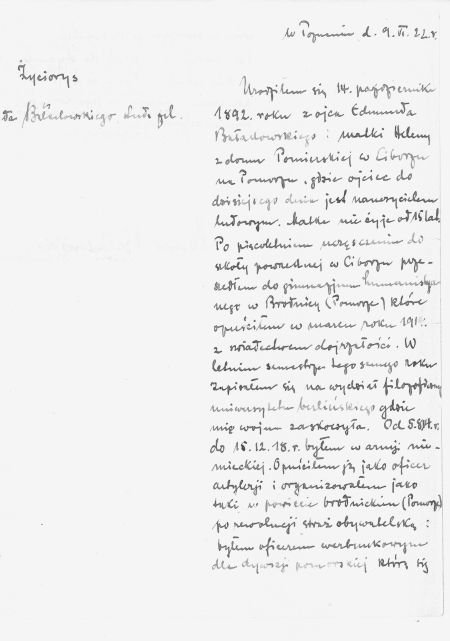 w Poznaniu d. 9. VI. 22.r.
Życiorys
Urodziłem się 14. października
1892. roku z ojca Edmunda
i matki Heleny
z domu Pomierskiej w Ciborzu
na Pomorzu, gdzie ojciec do
dzisiejszego dnia jest nauczycielem
ludowym. Matka nie żyje od 15 lat.
Po pięcioletniem uczęszczaniu do
szkoły powszednej w Ciborzu prze-
szedłem do gimnazjum humanistycz-
nego w Brodnicy (Pomorze) które
opuściłem w marcu roku
z świadectwem dojrzałości. W
letnim semestrze tego samego roku
zapisałem się na wydział filozoficzny
uniwersytetu berlińskiego gdzie
mię wojna zaskoczyła. Od
do 15.12.18.r. byłem w armji nie-
mieckiej. Opuściłem ją jako oficer
artylerji i organizowałem jako
taki w powiecie brodnickim (Pomorze)
po rewolucji straż obywatelską i
byłem oficerem werbunkowym
dla dywizji pomorskiej którą się